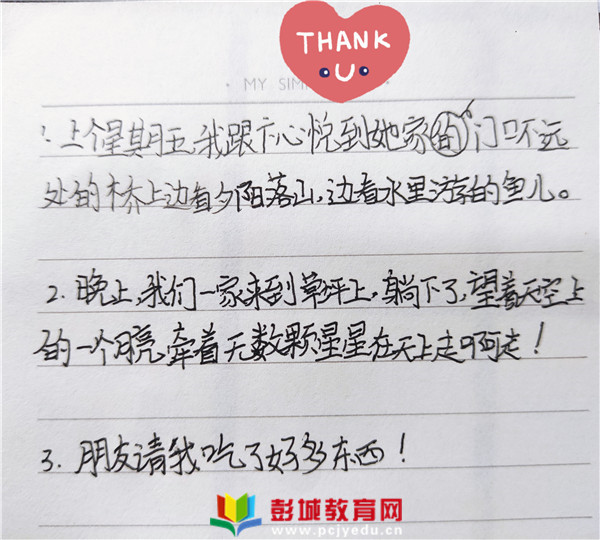 THANK
U
MY SIM
1.上个星期五,我跟卞心悦到她家的门口不远
处的桥上边看夕阳落山,边看水里游的鱼儿。
2.晚上,我们一家来到草坪上,躺下了,望着天空上
的一个月亮牵着无数颗星星在天上走啊走!
3.朋友请我吃了好多东西!
彭城教育网
www.pcjyedu.cn